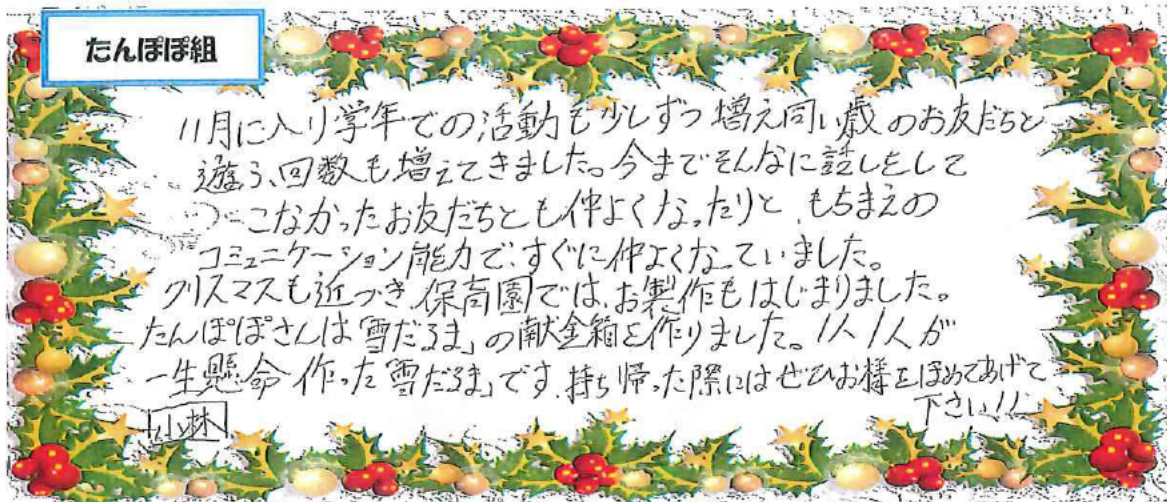 たんぽぽ組
11月に入り学年での活動も少しずつ増え同い歳のお友だちと
遊う、回数も増えてきました。今までそんなに話しをして
こなかったお友だちとも仲よくなったりと、もちまえの
コミュニケーション能力で、すぐに仲よくなっていました。
クリスマスも近づき保育園では、お製作もはじまりました。
たんぽぽさんは「雪だるま」の献金箱を作りました。1人1人が
一生懸命作った「雪だるま」です。持ち帰った際にはぜひお子様をほめてあげて
下さい!!
小林